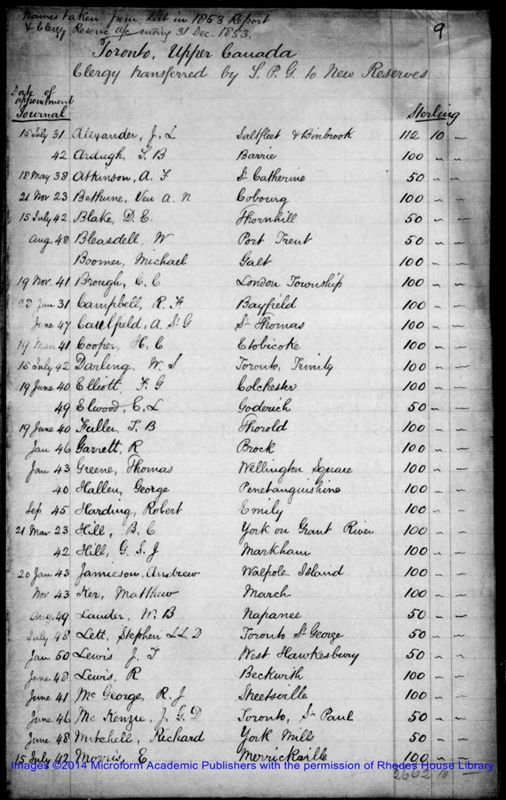 Names taken from List in 1853 Report
& Clergy Reserve a/c ending 31 Dec. 1853.
9
Toronto, Upper Canada
Clergy transferred by S.P.G. to New Reserves
Date of appointment Journal
Sterling
15 July 31 Alexander, J. L Saltfleet & Binbrook 112 10 -
42 Ardagh, S. B Barrie 100 - -
18 May 38 Atkinson, A. F St Catherine 50 - -
21 Nov 23 Bethune, Ven A. N Cobourg 100 - -
15 July 42 Blake, D. E. Thornhill 50 - -
Aug. 48 Bleasdell, W Port Trent 50 - -
Boomer, Michael Galt 100 - -
19 Nov. 41 Brough, C. C London Township 100 - -
Jan 31 Campbell, R. F Bayfield 100 - -
June 47 Caulfeild, A. St G St Thomas 100 - -
19 Mar 41 Cooper, H. C Etobicoke 100 - -
15 July 42 Darling, W. S Toronto, Trinity 100 - -
19 June 40 Elliott, F G Colchester 100 - -
49 Elwood, E. L Goderich 50 - -
19 June 40 Fuller, T. B Thorold 100 - -
Jan 46 Garrett, R Brock 100 - -
Jan 43 Greene, Thomas Wellington Square 100 - -
40 Hallen, George Penetanguishine 100 - -
Sep 45 Harding, Robert Emily 100 - -
21 Mar 23 Hill, B. C York on Grant River 100 - -
42 Hill, G. S. J Markham 100 - -
20 Jan 43 Jamieson, Andrew Walpole Island 100 - -
Nov 43 Ker, Matthew March 100 - -
Aug. 49 Lauder, W. B Napanee 50 - -
July 48 Lett, Stephen LL. D Toronto St George 50 - -
Jan 50 Lewis J. T West Hawkesbury 50 - -
June 48 Lewis, R Beckwith 100 - -
June 41 Mc George, R. J Streetsville 100 - -
June 46 Mc Kenzie, J. G. D Toronto, St Paul 50 - -
June 48 Mitchell, Richard York Mills 50 - -
15 July 42 Morris, E Merrickville 100 - -
2662 10 -
Images ©2014 Microform Academic Publishers with the permission of Rhodes House Library